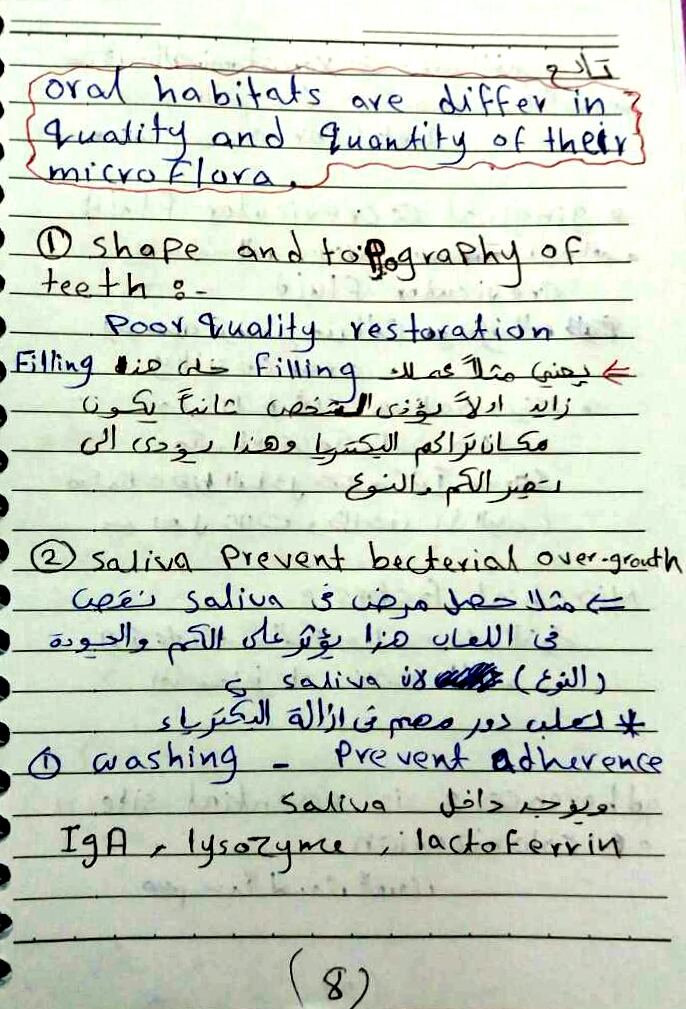 تابع
oral habitats are differ in
quality and quantity of their
microflora.
① shape and topography of
teeth :-
Poor quality restoration
← يعني مثلاً عملك Filling خلى هذا Filling
زايد اولاً يؤذى الشخص ثانياً يكون
مكان تراكم البكتريا وهذا يؤدى الى
تغير الكم والنوع
② saliva Prevent becterial over-grouth
← مثلا حصل مرض فى saliva نقص
فى اللعاب هذا يؤثر على الكم والجودة
(النوع) لان saliva
* تلعب دور مهم فى ازالة البكترياء
① washing - Prevent adherence
ويوجد داخل saliva
IgA, lysozyme, lactoferrin
(8)